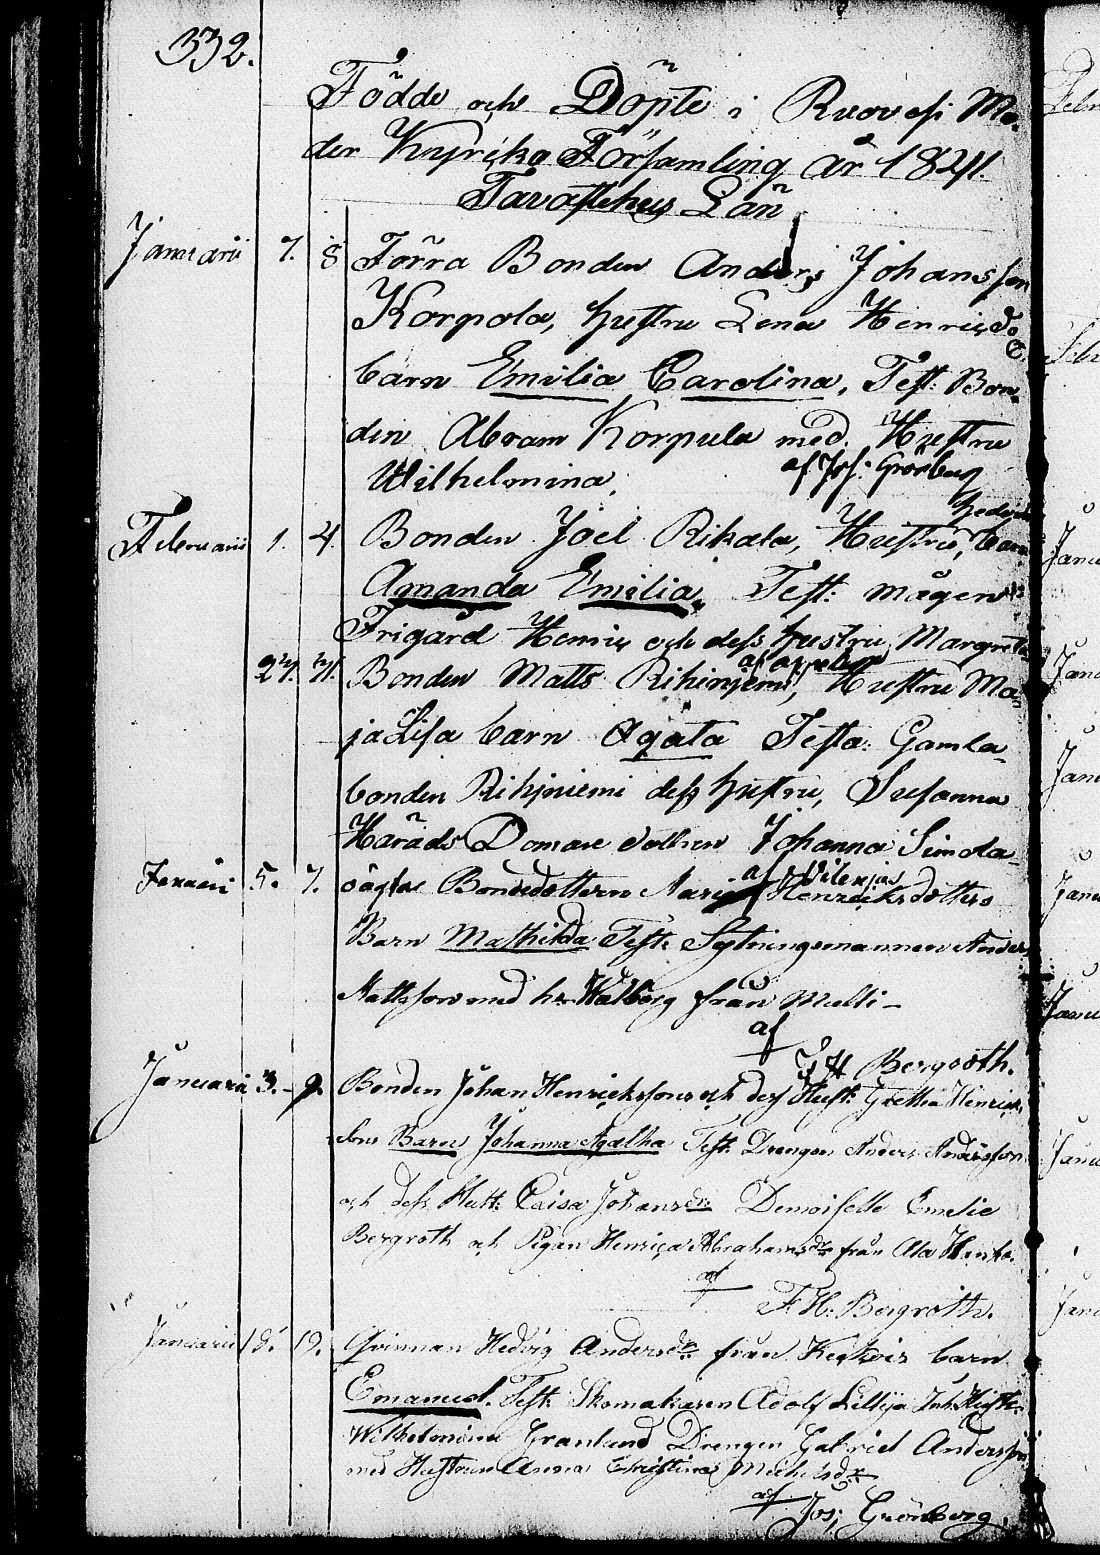 332.
Födde och Döpte i Ruovesi Mo-
der Kyrko Församling år 1841.
Tavastehus Län
Januarii 7. 8 Förra Bonden Anders Johansson
Korpola, hustru Lena Henrics
barn Emilia Carolina, Test: Bon-
den Abram Korpula med Hustru
Wilhelmina, af Jos: Grönberg
Februarii 1. 4. Bonden Joel Rikala, Hustru, barn
Amanda Emilia, Test: mågen
Frigård Henric och dess hustru Margreta
27. 31. Bonden Matts Rihiniemi, Hustru Ma-
ja Lisa barn Agata Testa: Gamla
bonden Rihiniemi dess hustru, Susanna
Härads Domare dottren Johanna Simola
Januari 5. 7. oägta Bondedottern Maria Henricksdotters
Barn Mathilda Test: Sytningsmannen Anders
Mattsson med h:u Walborg från Multi-
af
F H Bergroth.
Januarii 3. 9. Bonden Johan Henricksson och dess Hust: Gretha Henrics
Barn Johanna Agatha Test: Drengen Anders Andersson
och dess Hust: Caisa Johansdr: Demoiselle Emelie
Bergroth och Pigan Henrica Abrahamsdr från Ala Hanho.
af
F. H: Bergroth.
Januarii 18. 19. Qvinnan Hedvig Andersdr från Kerkois barn
Emanuel. Test: Skomakaren Adolf Lillja Hust:
Wilhelmina Granlund Drengen Gabriel Andersson
med Hustrun Anna Christina Michelsdr
af Jos; Grönberg.